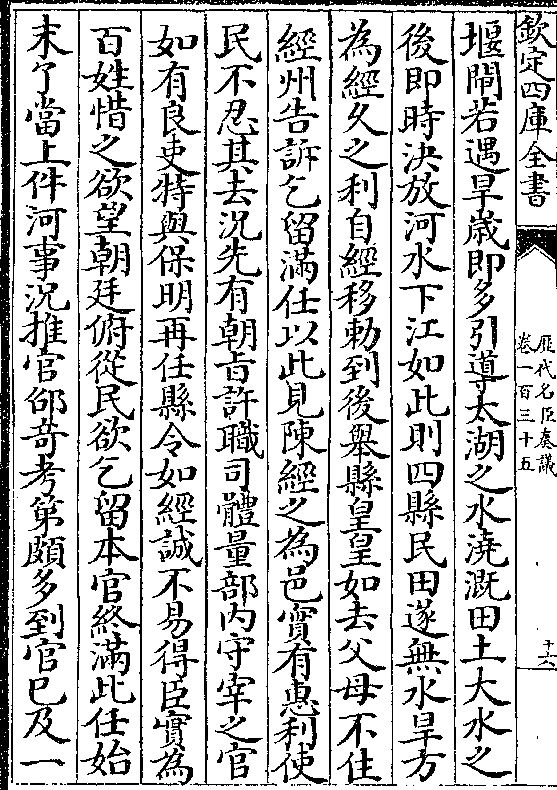 欽定四庫全書
歷代名臣奏議
卷一百三十五
十六
堰閘若遇旱歲即多引導太湖之水澆溉田土大水之
後即時決放河水下江如此則四縣民田遂無水旱方
為經久之利自經移勅到後舉縣皇皇如去父母不住
經州告訴乞留滿任以此見陳經之為邑實有惠利使
民不忍其去況先有朝旨許職司體量部內守宰之官
如有良吏特與保明再任縣令如經誠不易得臣實為
百姓惜之欲望朝廷俯從民欲乞留本官終滿此任始
末了當上件河事況推官邰奇考第頗多到官已及一